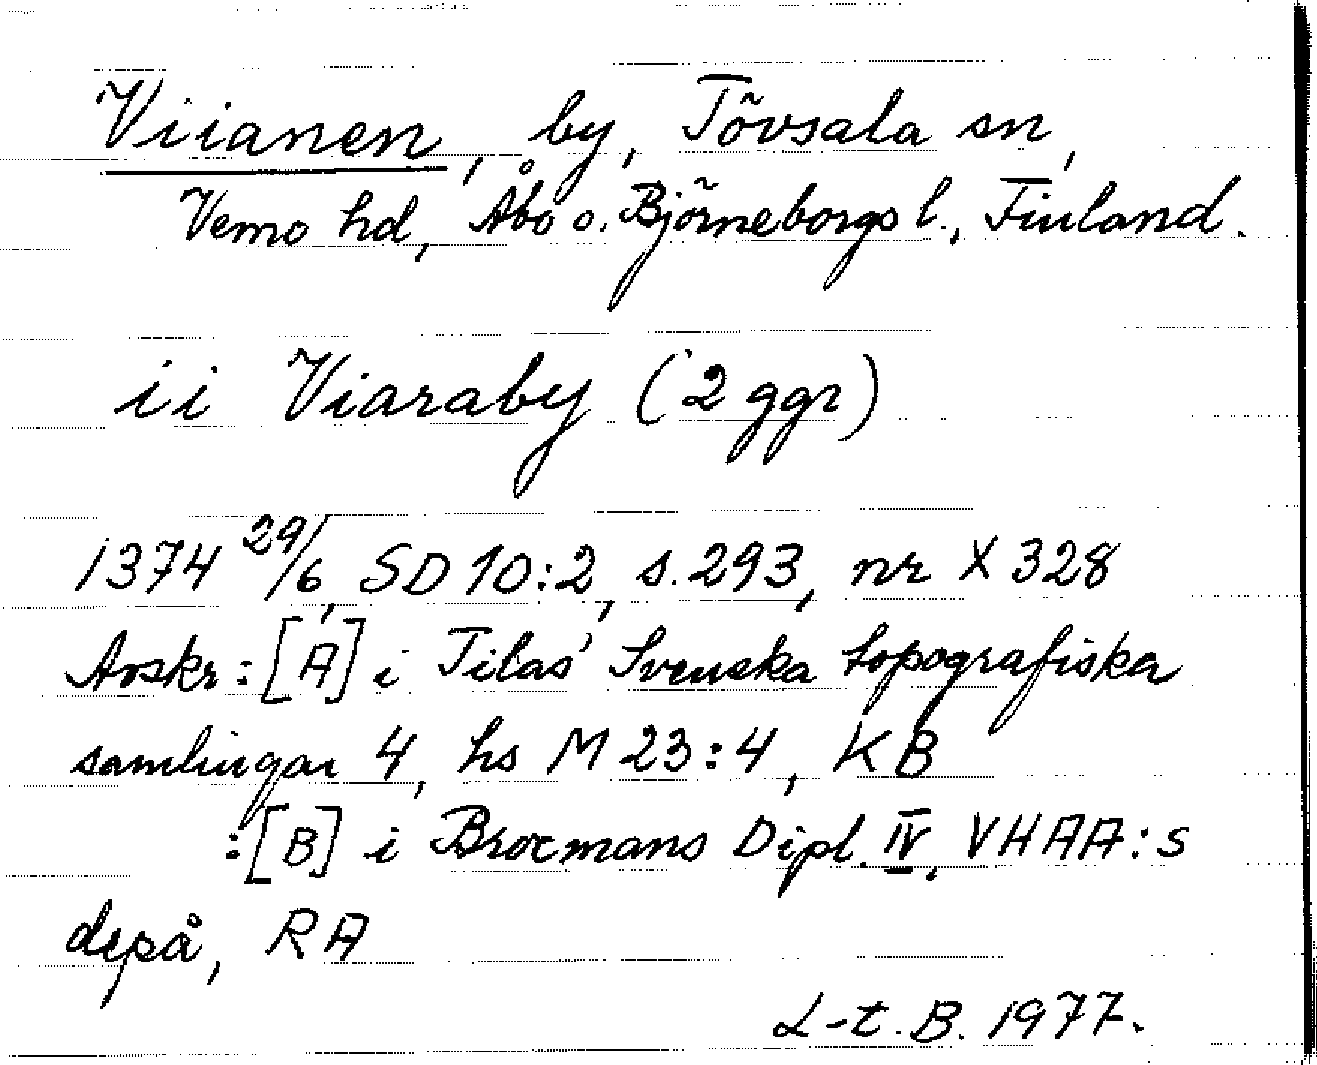 Viianen, by, Tövsala sn,
Vemo hd, Åbo o. Björneborgs l., Finland.
ii Viaraby (2 ggr)
1374 29/6, SD 10:2, s. 293, nr X 328
Avskr: [A] i Tilas' Svenska topografiska
samlingar 4, hs M 23:4, KB
:[B] i Brocmans Dipl. IV, VHAA:s
depå, RA
L-t. B. 1977.